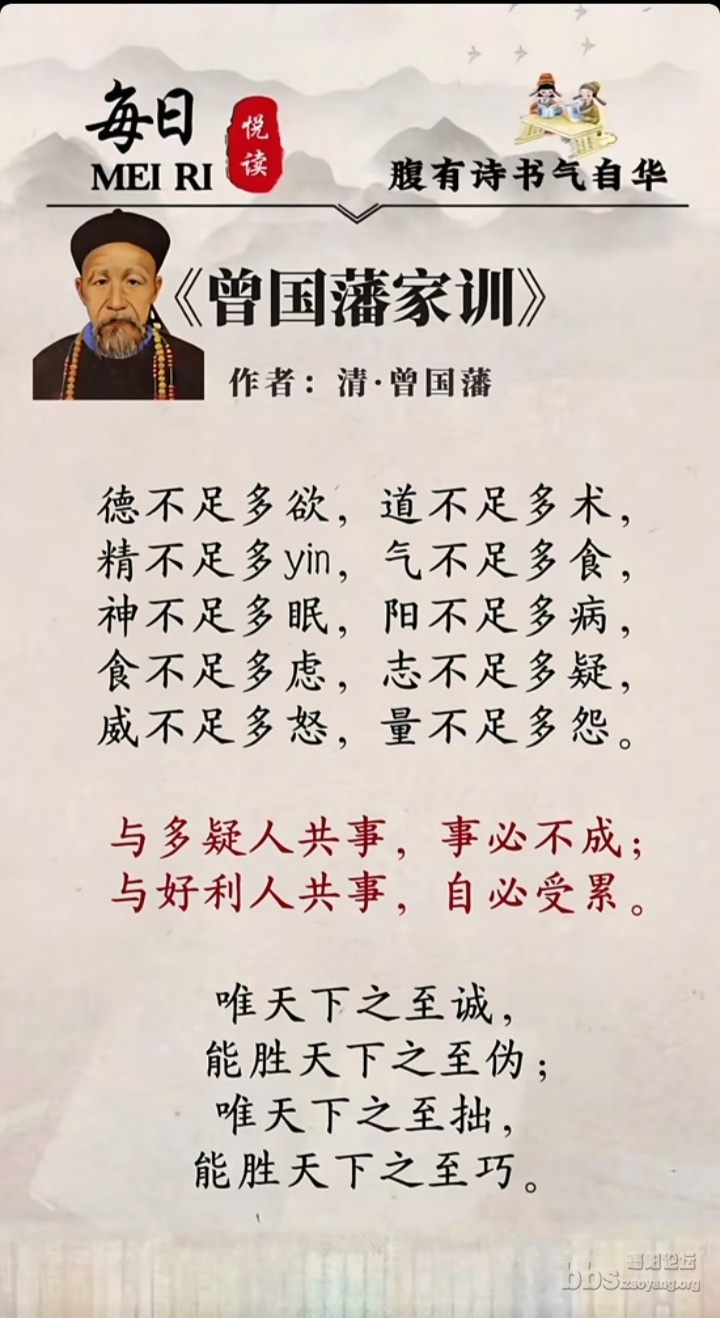 每日
悦读
MEI RI
腹有诗书气自华
《曾国藩家训》
作者：清·曾国藩
德不足多欲，道不足多术，
精不足多yin，气不足多食，
神不足多眠，阳不足多病，
食不足多虑，志不足多疑，
威不足多怒，量不足多怨。
与多疑人共事，事必不成；
与好利人共事，自必受累。
唯天下之至诚，
能胜天下之至伪；
唯天下之至拙，
能胜天下之至巧。
论坛
bbs.zaoyang.org